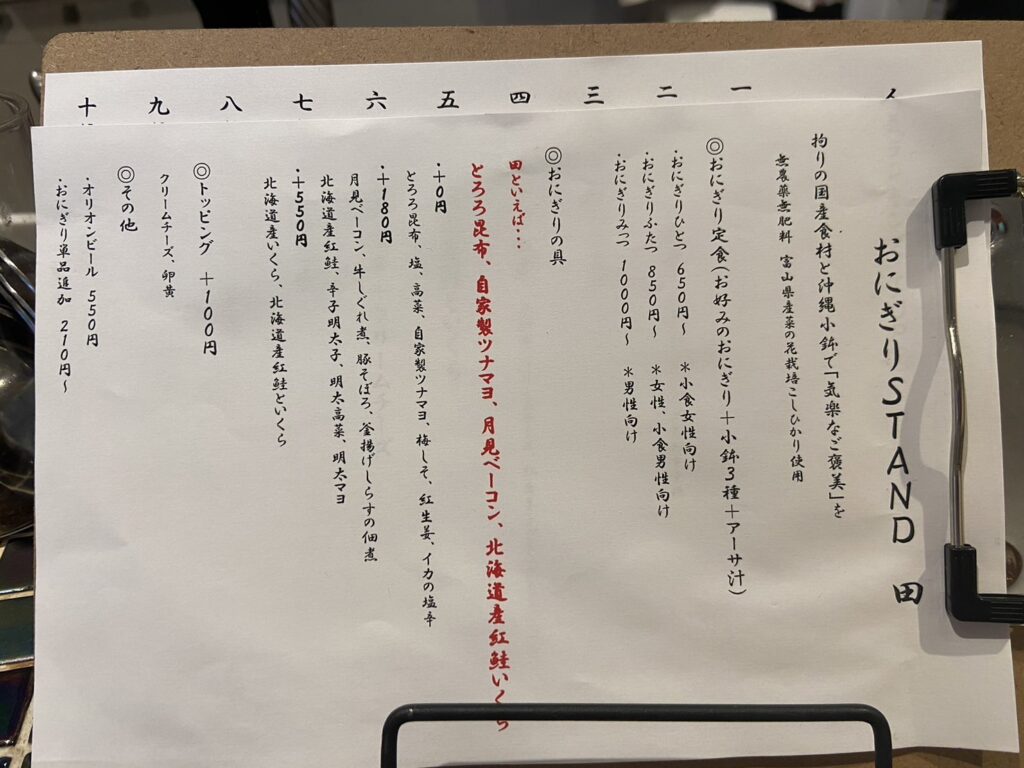 おにぎりSTAND 田
拘りの国産食材と沖縄小鉢で「気楽なご褒美」を
無農薬無肥料 富山県産菜の花栽培こしひかり使用
◎おにぎり定食(お好みのおにぎり+小鉢3種+アーサ汁)
・おにぎりひとつ 650円~ *小食女性向け
・おにぎりふたつ 850円~ *女性、小食男性向け
・おにぎりみつつ 1000円~ *男性向け
◎おにぎりの具
田といえば・・・
とろろ昆布、自家製ツナマヨ、月見ベーコン、北海道産紅鮭いくら
・+0円
とろろ昆布、塩、高菜、自家製ツナマヨ、梅しそ、紅生姜、イカの塩辛
・+180円
月見ベーコン、牛しぐれ煮、豚そぼろ、釜揚げしらすの佃煮
北海道産紅鮭、辛子明太子、明太高菜、明太マヨ
・+550円
北海道産いくら、北海道産紅鮭といくら
◎トッピング +100円
クリームチーズ、卵黄
◎その他
・オリオンビール 550円
・おにぎり単品追加 210円~
一
二
三
四
五
六
七
八
九
十